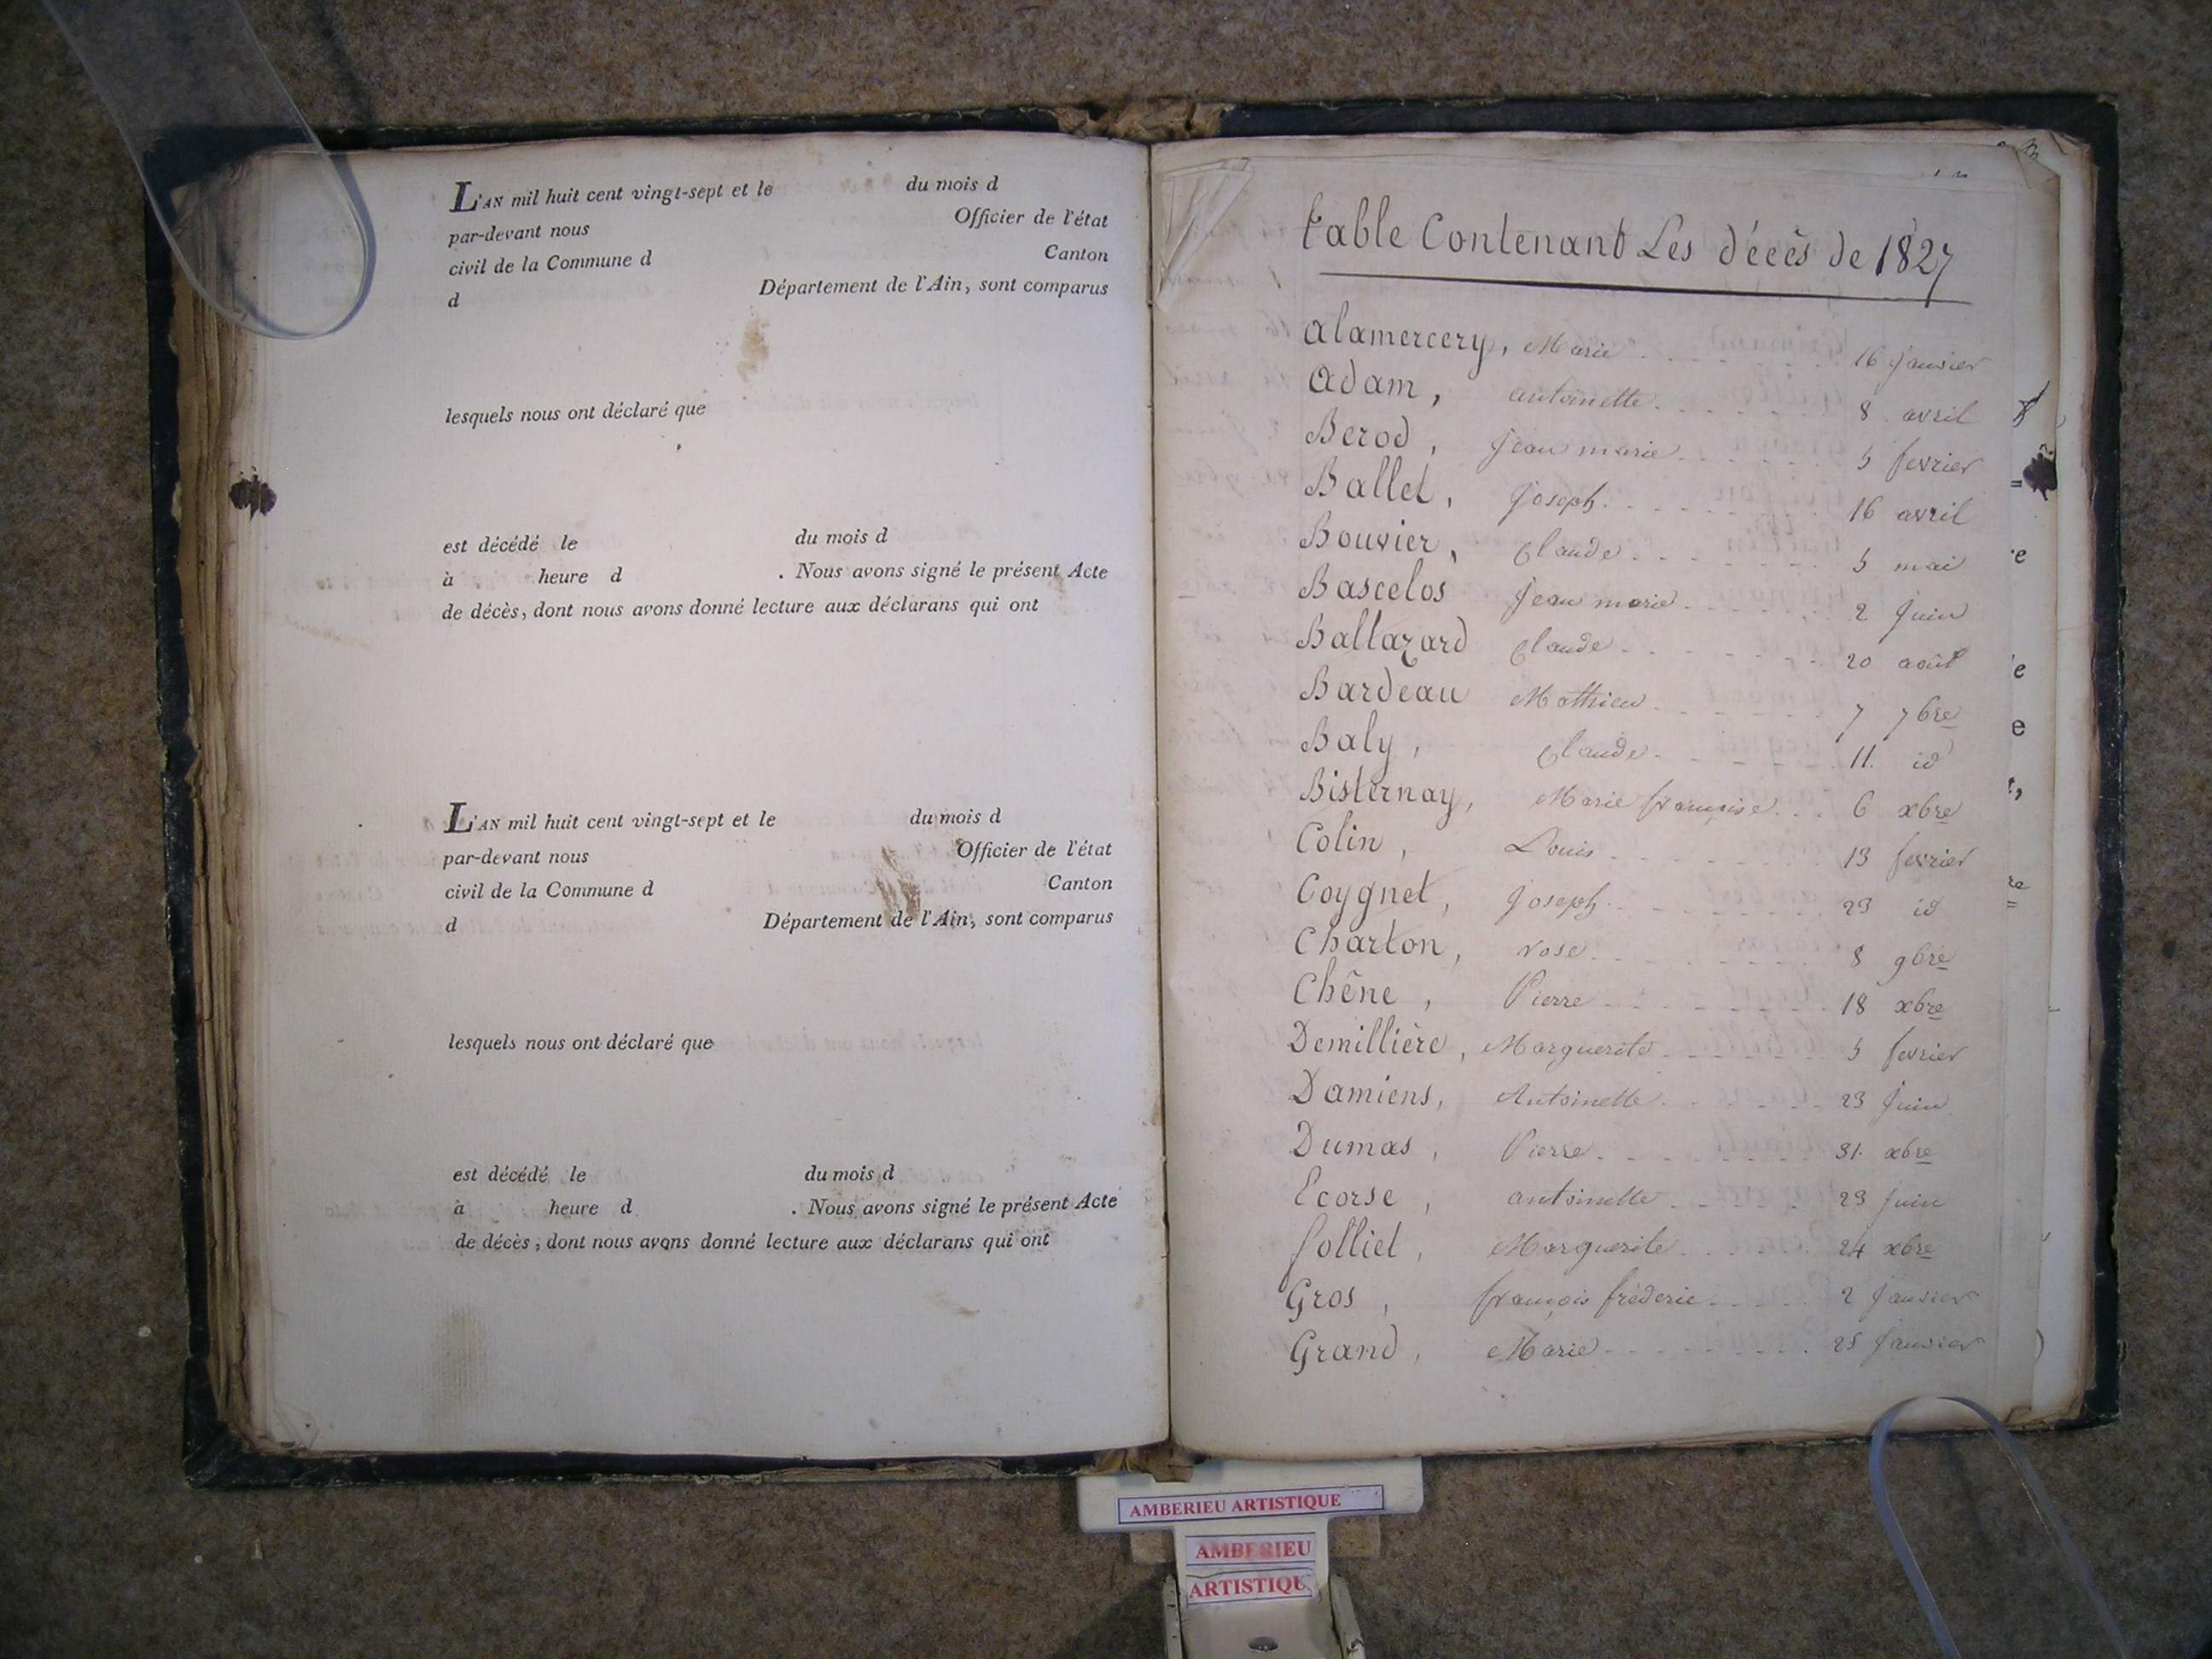 L'AN mil huit cent vingt-sept et le du mois d
par-devant nous Officier de l'état
civil de la Commune d Canton
d Département de l'Ain, sont comparus
lesquels nous ont déclaré que
est décédé le du mois d
à heure d . Nous avons signé le présent Acte
de décès, dont nous avons donné lecture aux déclarans qui ont
L'AN mil huit cent vingt-sept et le du mois d
par-devant nous Officier de l'état
civil de la Commune d Canton
d Département de l'Ain, sont comparus
lesquels nous ont déclaré que
est décédé le du mois d
à heure d . Nous avons signé le présent Acte
de décès, dont nous avons donné lecture aux déclarans qui ont
table Contenant Les décès de 1827
Alamercery, Marie 16 Janvier
Adam, antoinette 8 avril
Berod, Jean marie 5 fevrier
Ballet, Joseph 16 avril
Bouvier, Claude 5 mai
Bascelos Jean marie 2 Juin
Baltazard Claude 20 août
Bardeau Mathieu 7 7bre
Baly, Claude 11 id
Bisternay, Marie françoise 6 xbre
Colin, Louis 13 fevrier
Coygnet, Joseph 23 id
Charton, rose 8 9bre
Chêne, Pierre 18 xbre
Demillière, Marguerite 5 fevrier
Damiens, Antoinette 23 Juin
Dumas, Pierre 31 xbre
Ecorse, antoinette 23 Juin
folliet, Marguerite 24 xbre
Gros, françois fréderic 2 Janvier
Grand, Marie 25 Janvier
AMBERIEU ARTISTIQUE
AMBERIEU
ARTISTIQU